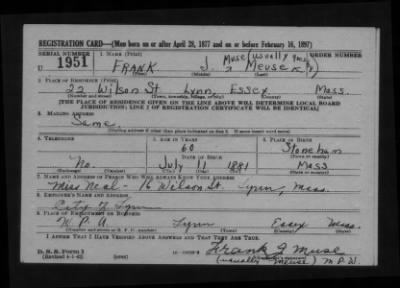 REGISTRATION CARD—(Men born on or after April 28, 1877 and on or before February 16, 1897)
SERIAL NUMBER 1. NAME (Print) ORDER NUMBER
U 1951 FRANK J. Muse (usually
Meuse
(First) (Middle) (Last)
2. PLACE OF RESIDENCE (Print)
22 Wilson St Lynn, Essex Mass.
(Number and street) (Town, township, village, or city) (County) (State)
[THE PLACE OF RESIDENCE GIVEN ON THE LINE ABOVE WILL DETERMINE LOCAL BOARD
JURISDICTION; LINE 2 OF REGISTRATION CERTIFICATE WILL BE IDENTICAL]
3. MAILING ADDRESS
Same.
[Mailing address if other than place indicated on line 2. If same insert word same]
4. TELEPHONE 5. AGE IN YEARS 6. PLACE OF BIRTH
60 Stoneham
DATE OF BIRTH (Town or county)
No. July 11 1881 Mass
(Exchange) (Number) (Mo.) (Day) (Yr.) (State or country)
7. NAME AND ADDRESS OF PERSON WHO WILL ALWAYS KNOW YOUR ADDRESS
Miss Neal - 16 Wilson St. Lynn, Mass.
8. EMPLOYER'S NAME AND ADDRESS
City of Lynn
9. PLACE OF EMPLOYMENT OR BUSINESS
W. P. A. Lynn Essex Mass.
(Number and street or R. F. D. number) (Town) (County) (State)
I AFFIRM THAT I HAVE VERIFIED ABOVE ANSWERS AND THAT THEY ARE TRUE.
D. S. S. Form 1
(Revised 4-1-42) (over) Frank J Muse
(usually Meuse) M.P.W.